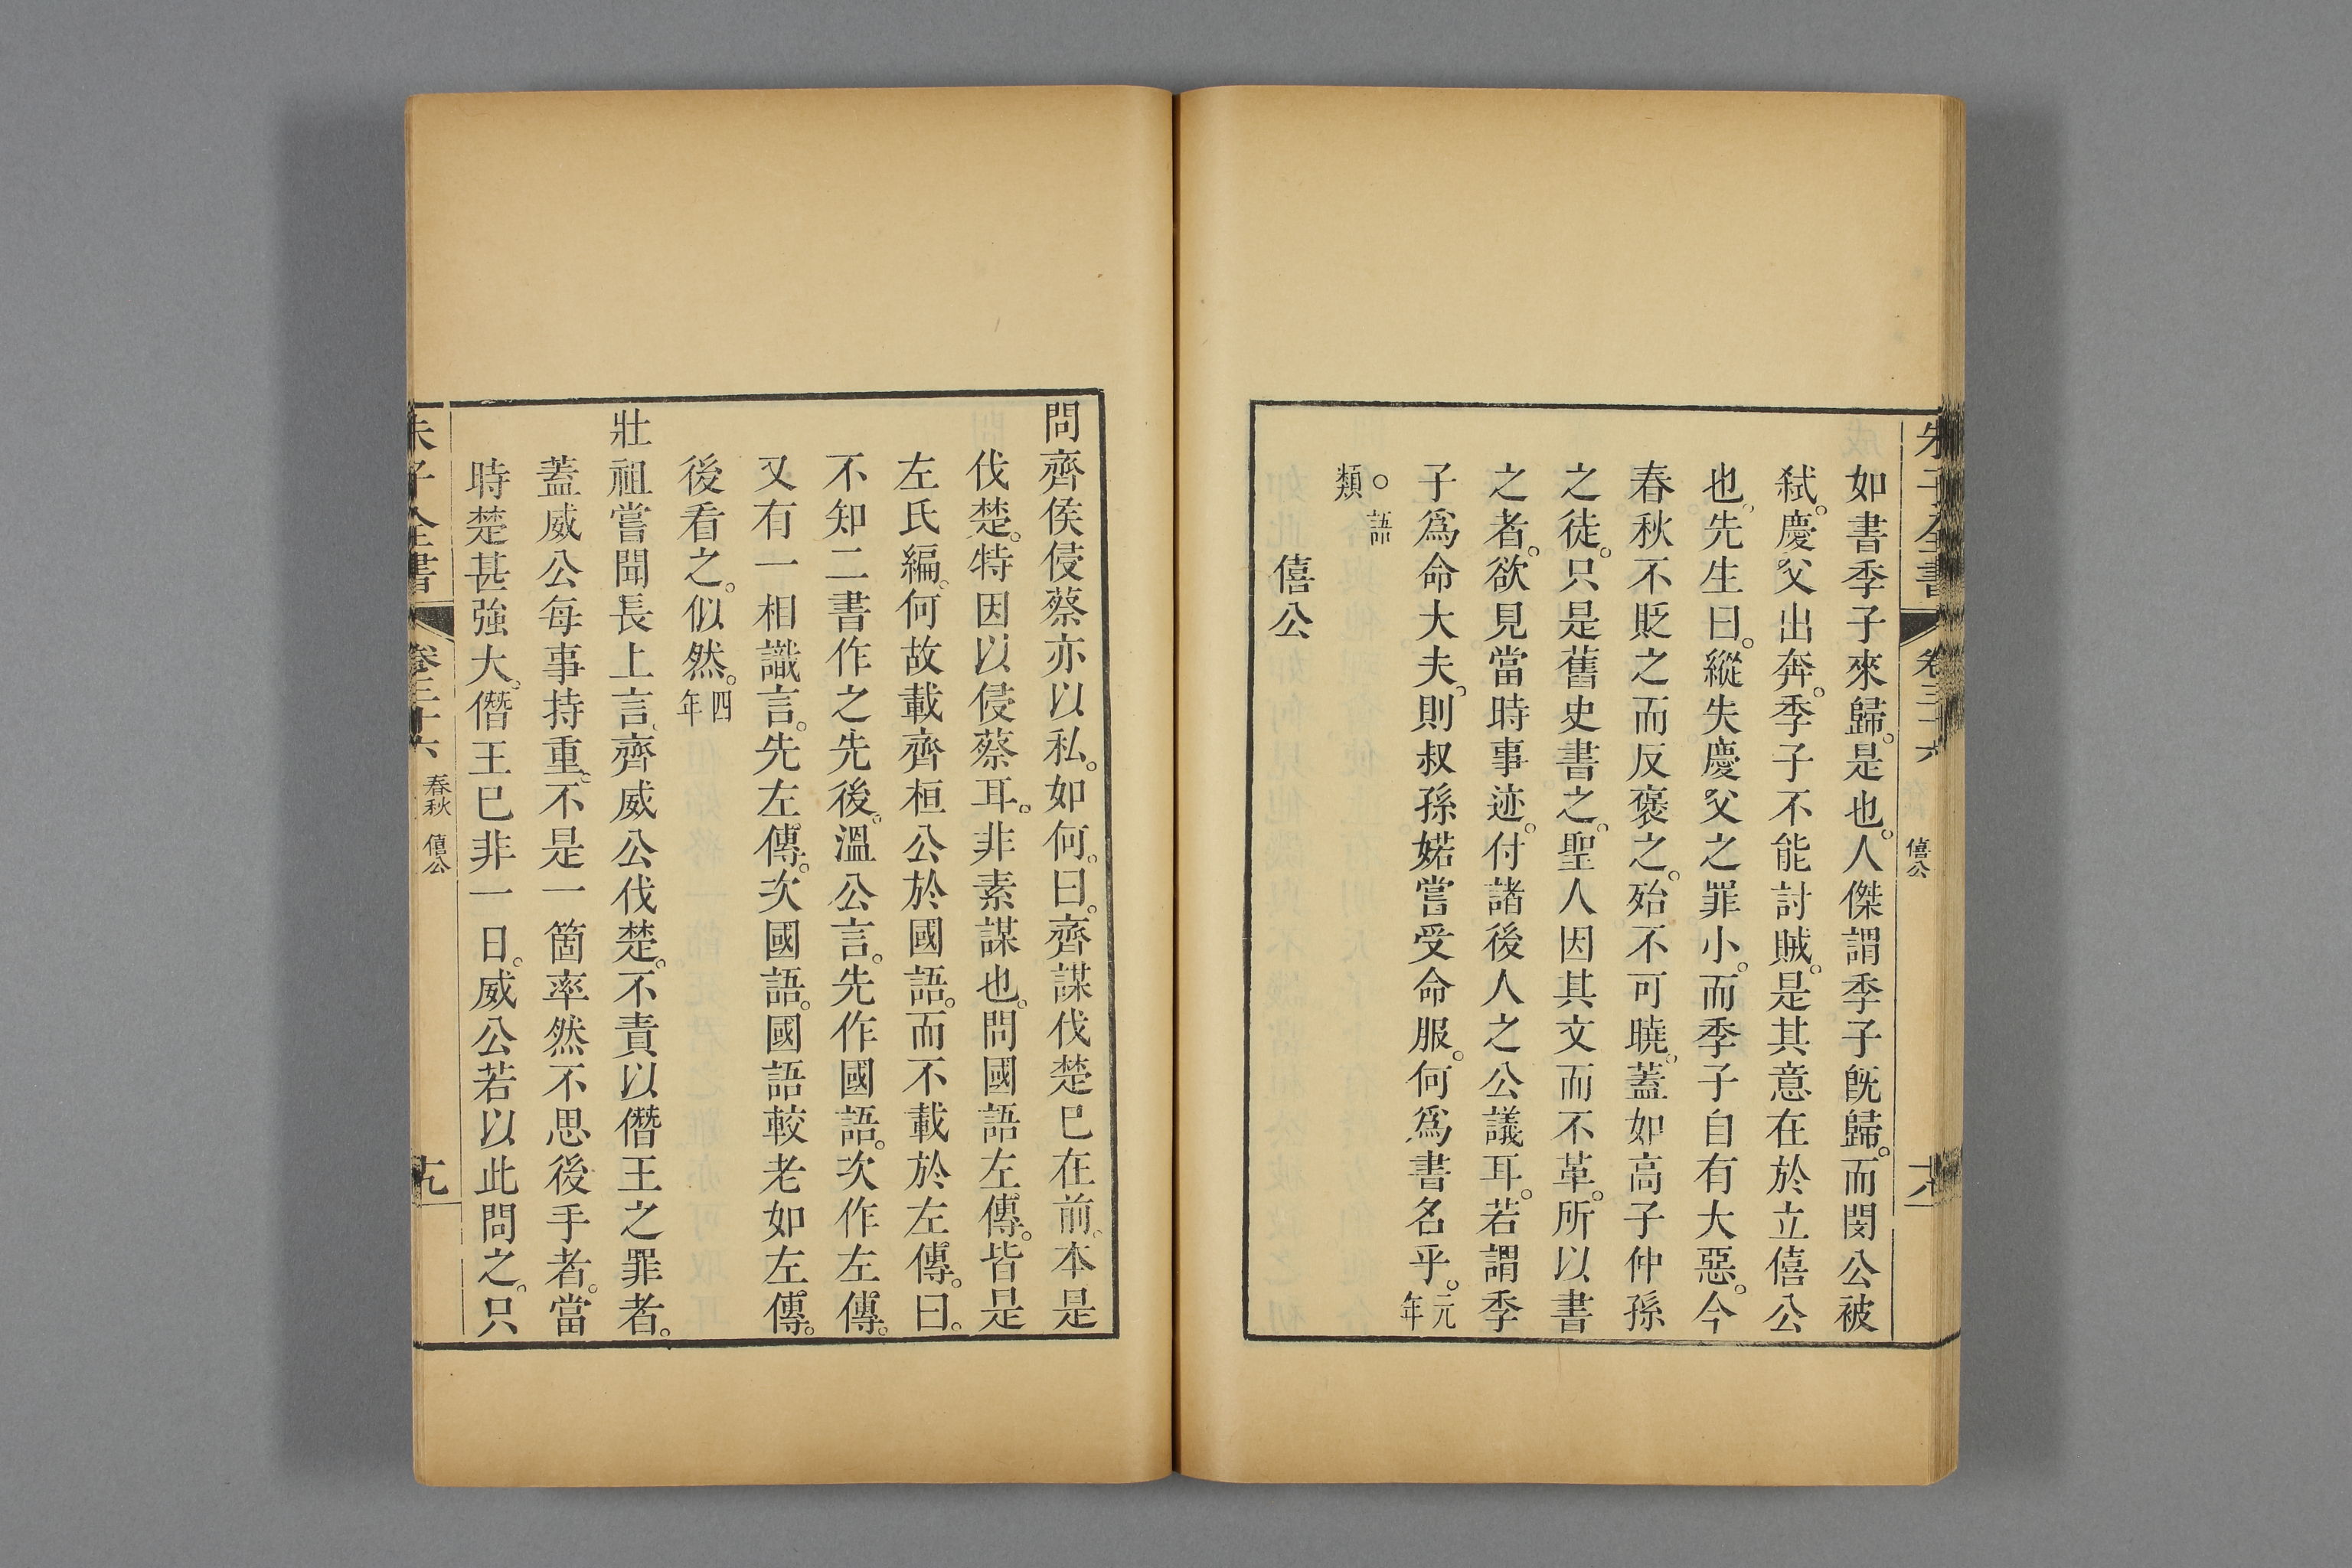 朱子全書 卷三十六 僖公 十八
如書季子來歸。是也。人傑謂季子旣歸。而閔公被
弑。慶父出奔。季子不能討賊。是其意在於立僖公
也。先生曰。縱失慶父之罪小。而季子自有大惡。今
春秋不貶之而反褒之。殆不可曉。蓋如高子仲孫
之徒。只是舊史書之。聖人因其文而不革。所以書
之者。欲見當時事迹。付諸後人之公議耳。若謂季
子爲命大夫。則叔孫婼嘗受命服。何爲書名乎。元年
○語類
僖公
問齊侯侵蔡亦以私。如何。曰。齊謀伐楚已在前。本是
伐楚。特因以侵蔡耳。非素謀也。問國語左傳。皆是
左氏編。何故載齊桓公於國語。而不載於左傳。曰。
不知二書作之先後。溫公言。先作國語。次作左傳。
又有一相識言。先左傳。次國語。國語較老如左傳。
後看之。似然。四年
壯祖嘗聞長上言。齊威公伐楚。不責以僭王之罪者。
蓋威公每事持重。不是一箇率然不思後手者。當
時楚甚強大。僭王已非一日。威公若以此問之。只
朱子全書 卷三十六 春秋 僖公 十九